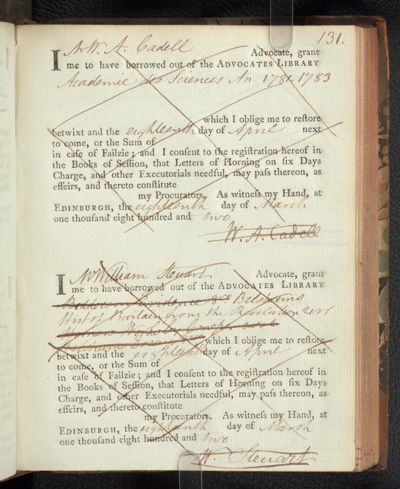 131.
I Mr W. A. Cadell Advocate, grant
me to have borrowed out of the ADVOCATES LIBRARY
Academie des Sciences An. 1781. 1783
which I oblige me to reſtore
betwixt and the eighteenth day of April next
to come, or the Sum of
in caſe of Failzie; and I conſent to the regiſtration hereof in
the Books of Seſſion, that Letters of Horning on ſix Days
Charge, and other Executorials needful, may paſs thereon, as
effeirs, and thereto conſtitute
my Procurators. As witneſs my Hand, at
EDINBURGH, the eighteenth day of March
one thouſand eight hundred and two
W. A. Cadell
I Mr William Steuart Advocate, grant
me to have borrowed out of the ADVOCATES LIBRARY
Evidence Belshams
Hist of Britain from the Revolution 2 vols
which I oblige me to reſtore
betwixt and the eighteenth day of April next
to come, or the Sum of
in caſe of Failzie; and I conſent to the regiſtration hereof in
the Books of Seſſion, that Letters of Horning on ſix Days
Charge, and other Executorials needful, may paſs thereon, as
effeirs, and thereto conſtitute
my Procurators. As witneſs my Hand, at
EDINBURGH, the eighteenth day of March
one thouſand eight hundred and two
W. Steuart